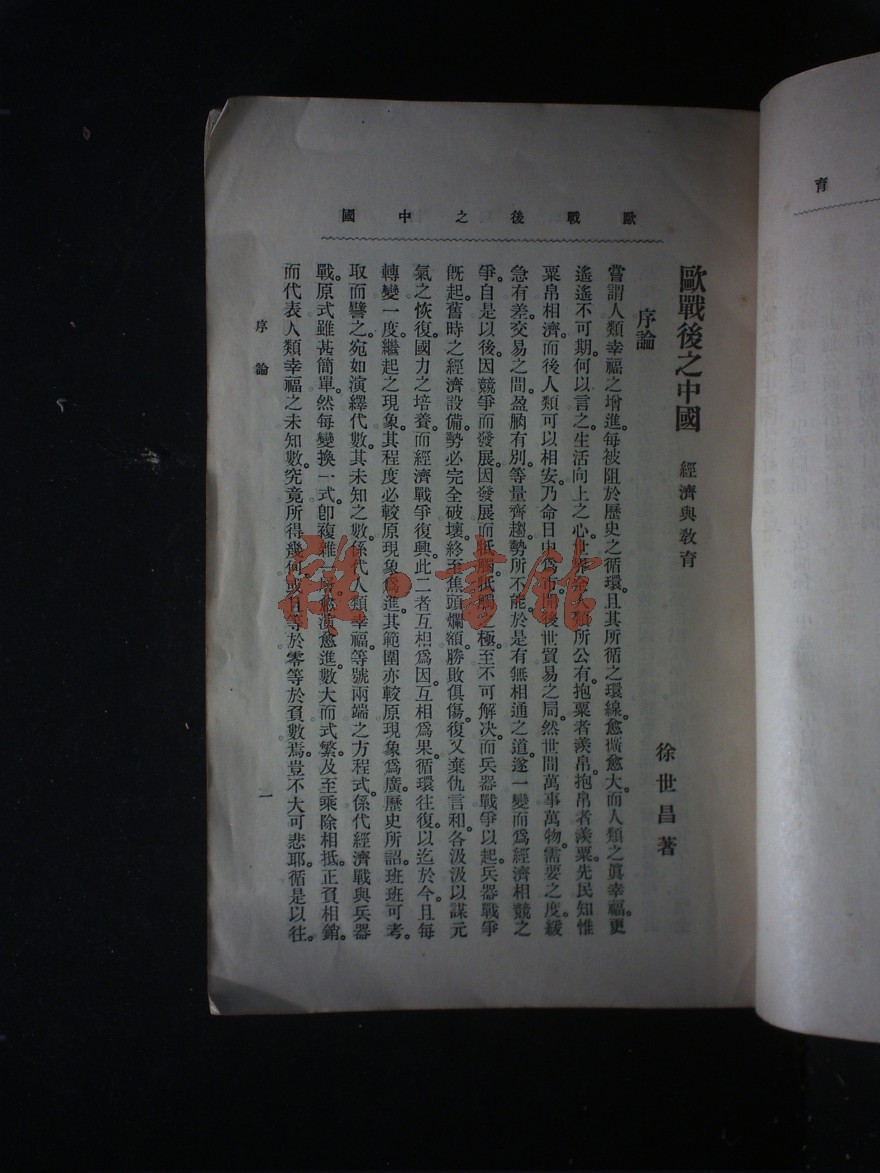 歐戰後之中國
歐戰後之中國 經濟與敎育
徐世昌著
序論
嘗謂人類幸福之增進。每被阻於歷史之循環。且其所循之環線愈廣愈大。而人類之眞幸福。更
遙遙不可期。何以言之。生活向上之心。世界人類所公有。抱粟者羨帛。抱帛者羨粟。先民知惟
粟帛相濟。而後人類可以相安。乃命日中爲市。而後世貿易之局。然世間萬事萬物。需要之度。緩
急有差。交易之間。盈朒有別。等量齊趨。勢所不能。於是有無相通之道。遂一變而爲經濟相競之
爭。自是以後。因競爭而發展。因發展而牴觸。牴觸之極。至不可解決。而兵器戰爭以起。兵器戰爭
旣起。舊時之經濟設備。勢必完全破壞。終至焦頭爛額。勝敗俱傷。復又棄仇言和。各汲汲以謀元
氣之恢復。國力之培養。而經濟戰爭復興。此二者互相爲因。互相爲果。循環往復。以迄於今。且每
轉變一度。繼起之現象。其程度必較原現象爲進。其範圍亦較原現象爲廣。歷史所詔。班班可考。
取而譬之。宛如演繹代數。其未知之數。係代人類幸福。等號兩端之方程式。係代經濟戰與兵器
戰。原式雖甚簡單。然每變換一式。卽複雜一層。愈演愈進。數大而式繁。及至乘除相抵。正負相銷。
而代表人類幸福之未知數。究竟所得幾何。或且等於零。等於負數焉。豈不大可悲耶。循是以往。
序論
一
育
雜·書館